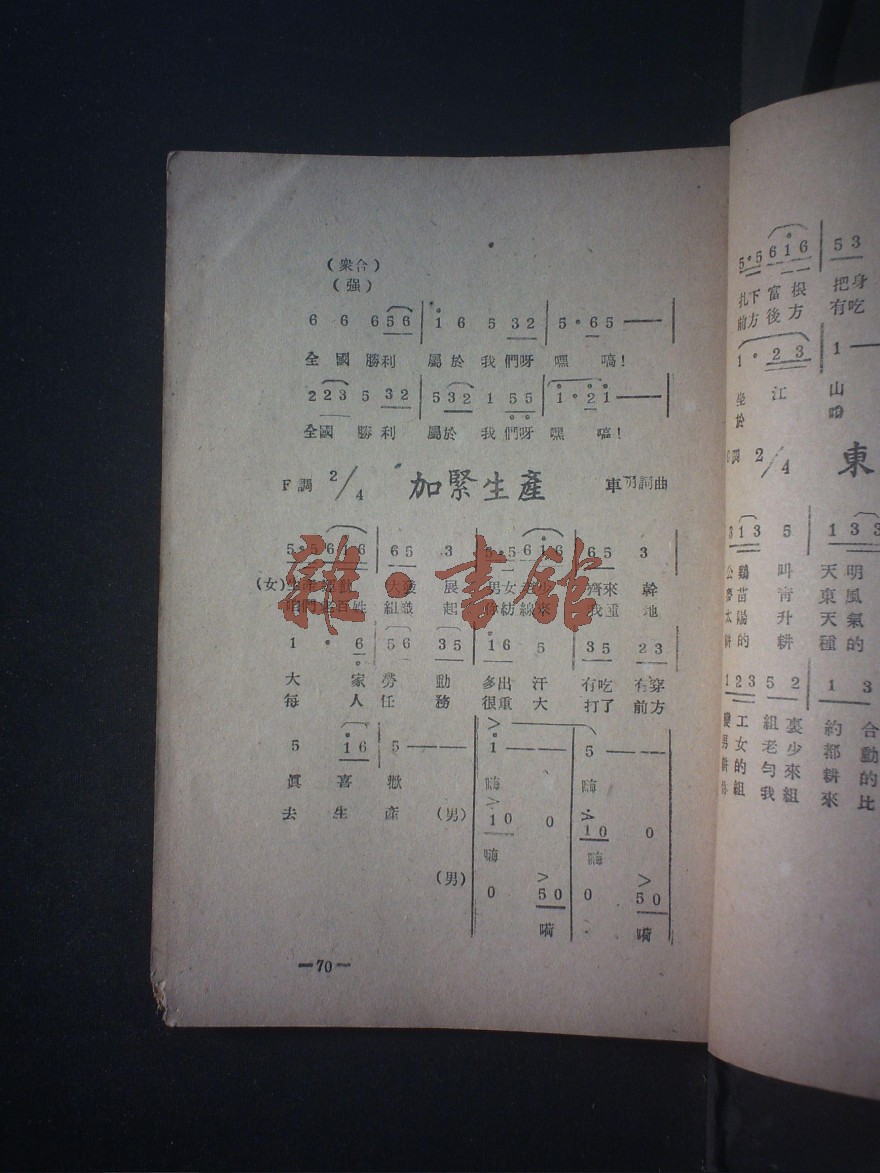 (衆合)
(强)
6 6 6 5 6 | 1 6 5 3 2 | 5 · 6 5 —— |
全國勝利 屬於我們呀嘿嗃!
2 2 3 5 3 2 | 5 3 2 1 5 5 | 1 · 2 1 —— |
全國勝利 屬於我們呀嘿嗃!
F調 2/4 加緊生產 車明詞曲
5·5 6 1 6 | 6 5 3 | 5·5 6 1 6 | 6 5 3 |
(女) 大發展 男女老少 齊來幹
咱們老百姓 組織起 你紡線來 我種地
1 · 6 | 5 6 3 5 | 1 6 5 | 3 5 2 3 |
大家勞動 多出汗 有吃有穿
每人任務 很重大 打了前方
5 1 6 | 5 —— | 1 —— | 5 —— |
眞喜歡 嗨 嗨
去生產 (男) 1 0 0 | 1 0 0
嗨 嗨
(男) 0 5 0 | 0 5 0
嗬 嗬
—70—
5·5 6 1 6 | 5 3
扎下富根 把身
前方後方 有吃
1 · 2 3 | 1 —
坐江 山
於
調 2/4 東
3 1 3 5 | 1 3 3
公鷄叫 天明
麥苗青 東風
太陽升 天氣
耕的耕 種的
1 2 3 5 2 | 1 3
變工組裏 約合
男女老少 都動
耕的勻來 耕的
組我組 來比